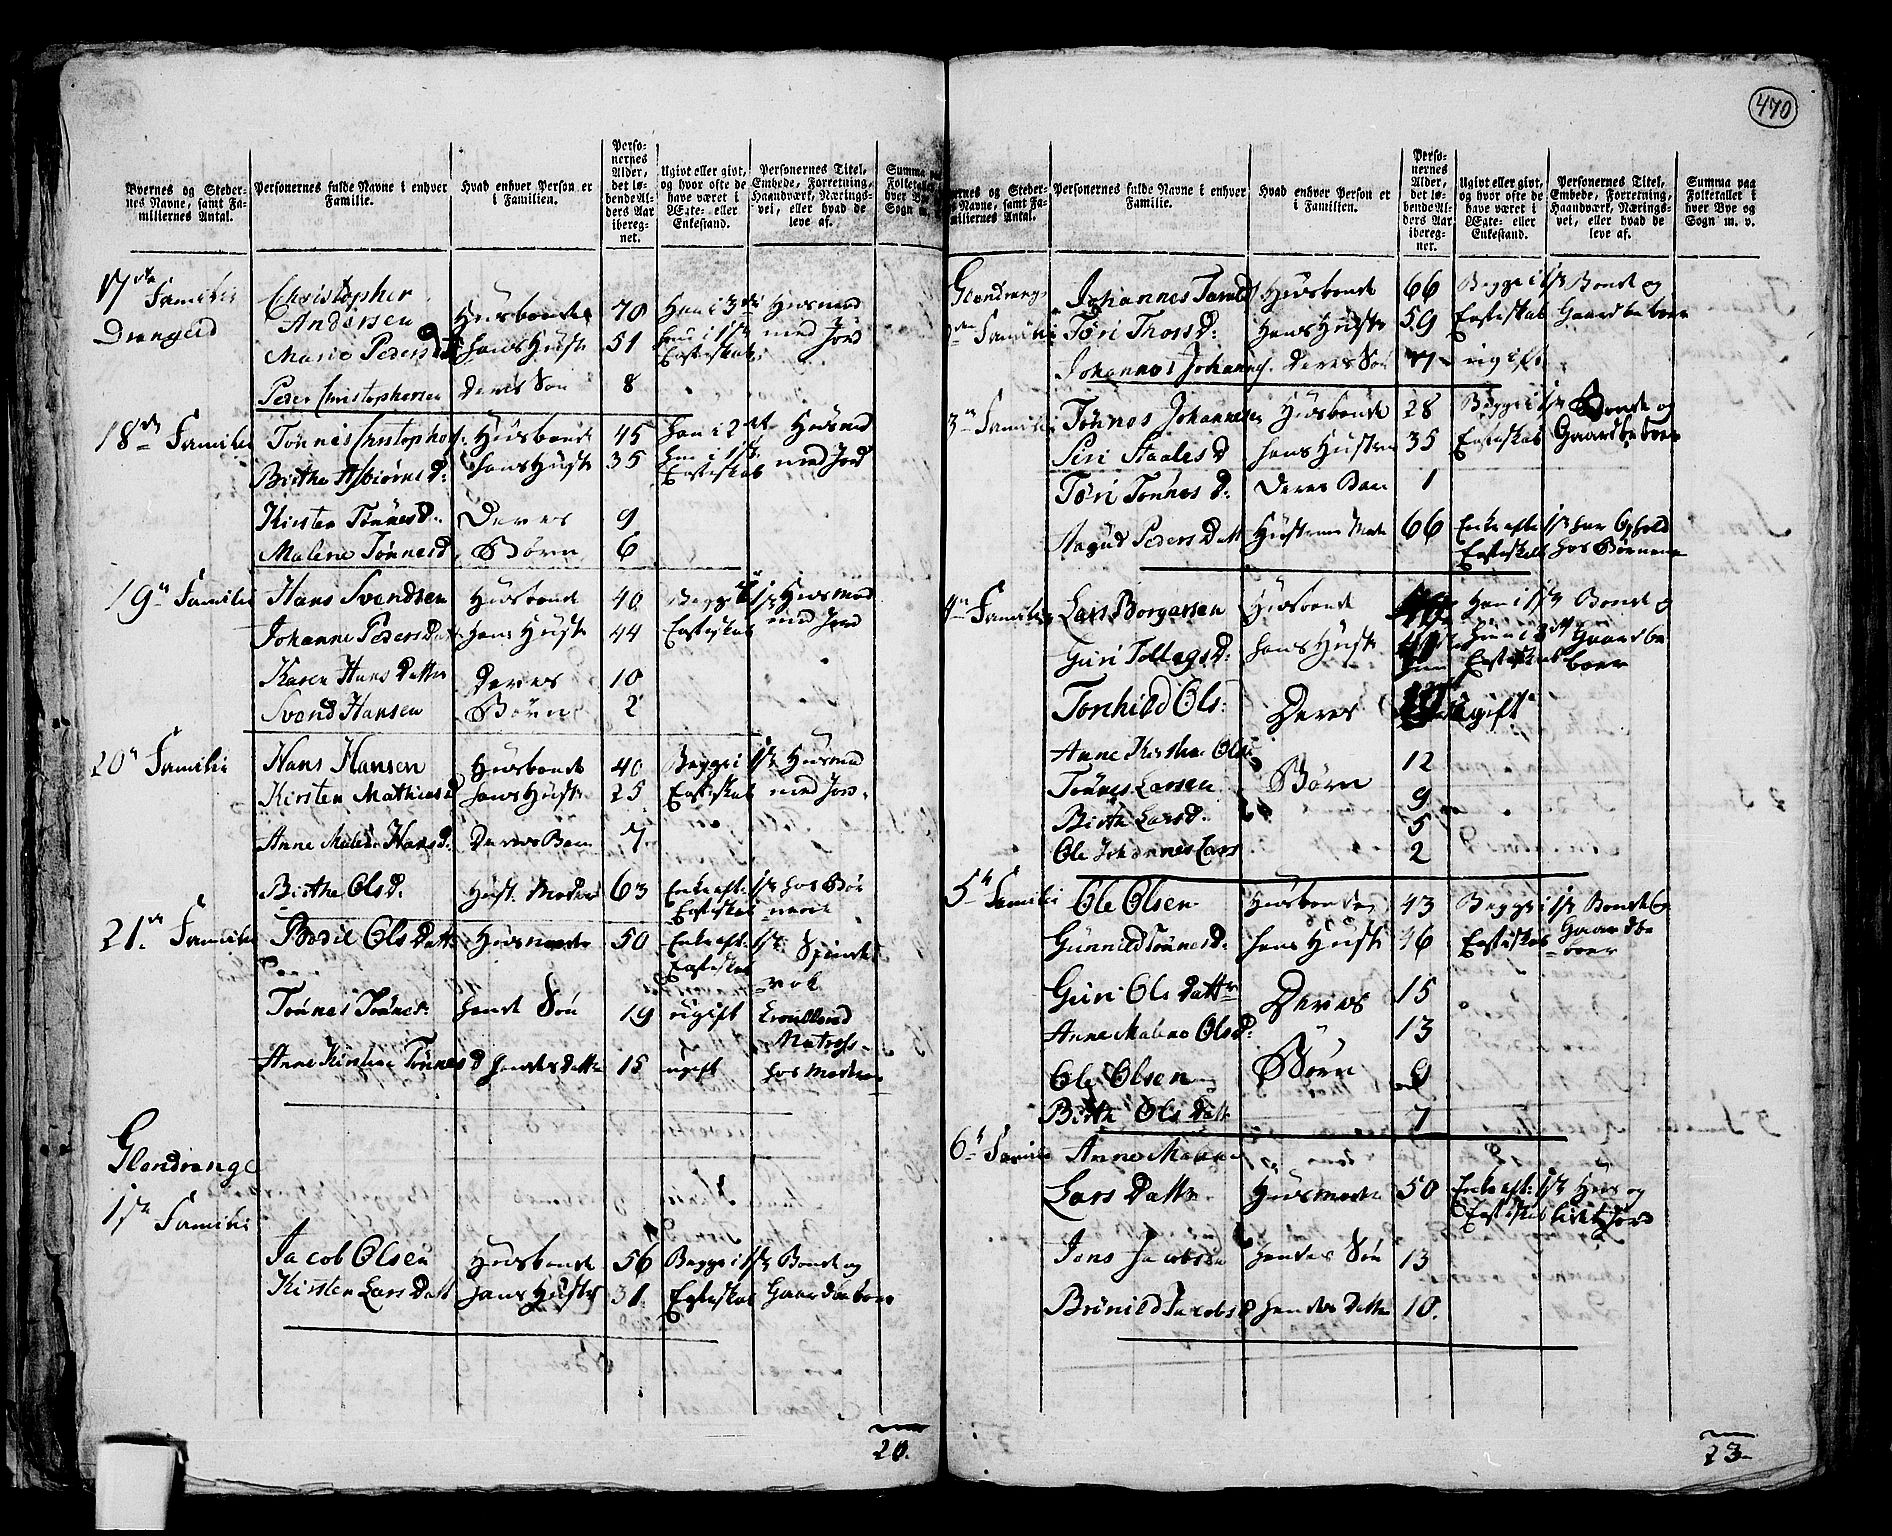 470
Byernes og Stedernes Navne, samt Familiernes Antal.
Personernes fulde Navne i enhver Familie.
Hvad enhver Person er i Familien.
Personernes Alder, det løbende Alders Aar iberegnet.
Ugivt eller givt, og hvor ofte de have været i Ægte- eller Enkestand.
Personernes Titel, Embede, Forretning, Haandværk, Næringsvei, eller hvad de leve af.
Summa paa Folketallet i hver Bye og Sogn
17de Familie
Drangeid
Christopher
Andersen Huusbonde 70 Han i 3di Huusmd
Marie Peders D hans Hustr 51 hun i 1ste med Jord
Egteskab
Peder Christophersen Deres Søn 8
18de Familie Tønnes Christophers. Huusbonde 45 han i 2det Huusmd
Birthe Asbiørns D. hans Hustr 35 hun i 1ste med Jord
Egteskab
Kirsten Tønnes D. Deres 9
Malene Tønnes D. Børn 6
19de Familie Hans Svendsen Huusbonde 40 Begge i 1ste Huusmd
Johanne Peders Datter hans Hustr 44 Egteskab med Jord
Karen Hans Datter Deres 10
Svend Hansen Børn 2
20de Familie Hans Hansen Huusbonde 40 Begge i 1ste Huusmd
Kirsten Mathias D hans Hustr 25 Egteskab med Jor
Anne Malene Hans D. Deres Barn 7
Birthe Ols D. Hust. Moder 63 Enke eft. 1ste hos Bør
Egteskab nene
21de Familie Bodil Ols Datt. Huusmoder 50 Enke eft. 1ste Spinde
Egteskab rok
Tønnes Tønnes. hendes Søn 19 ugift
Matros
Anne Kirstine Tønnes D hendes Datter 15 ugift hos Moderen
Glendrange
1ste Familie
Jacob Olsen Huusbonde 56 Begge i 1ste Bonde og
Kirsten Lars Datt hans Hustr 31 Egteskab Gaardbeboer
20.
Byernes og Stedernes Navne, samt Familiernes Antal.
Personernes fulde Navne i enhver Familie.
Hvad enhver Person er i Familien.
Personernes Alder, det løbende Alders Aar iberegnet.
Ugivt eller givt, og hvor ofte de have været i Ægte- eller Enkestand.
Personernes Titel, Embede, Forretning, Haandværk, Næringsvei, eller hvad de leve af.
Summa paa Folketallet i hver Bye og Sogn m. v.
Glendrange Johannes Huusbonde 66 Begge i 1ste Bonde og
2den Familie Tøri Thors D. hans Hustr 59 Egteskab Gaardbeboer
Johannes Johannes. Deres Søn 17 ugift
3de Familie Tønnes Johannesen Huusbonde 28 Begge i 1ste Bonde og
Siri Staales D hans Hustrue 35 Egteskab Gaardbeboer
Tøri Tønnes D. Deres Barn 1
Peders Datt Hustrues Moder 66 Enke efter 1ste har Ophold
Egteskab hos Børnene
4de Familie Lars Borgersen Huusbonde Han i 1ste Bonde og
Guri Tollags D. hans Hustr Hun i 2det Gaardbe
Egteskab boer
Tonhild Ols. Deres ugift
Anne Kirstine Ols 12
Tønnes Larsen Børn 9
Birthe Lars D. 5
Ole Johannes Lars 2
5te Familie Ole Olsen Huusbonde 43 Begge i 1ste Bonde og
Gunnild Tønnes D. hans Hustr 46 Egteskab Gaardbe
boer
Guri Ols Datter Deres 15
Anne Malene Ols D. 13
Ole Olsen Børn 9
Birthe Ols Datt 7
6te Familie Anne Malene
Lars Datter Huusmoder 50 Enke eft. 1ste Huus og
Egteskab lidet Jord
Jens Jacobsen hendes Søn 13
Brynild Jacobs D hendes Datter 10.
23